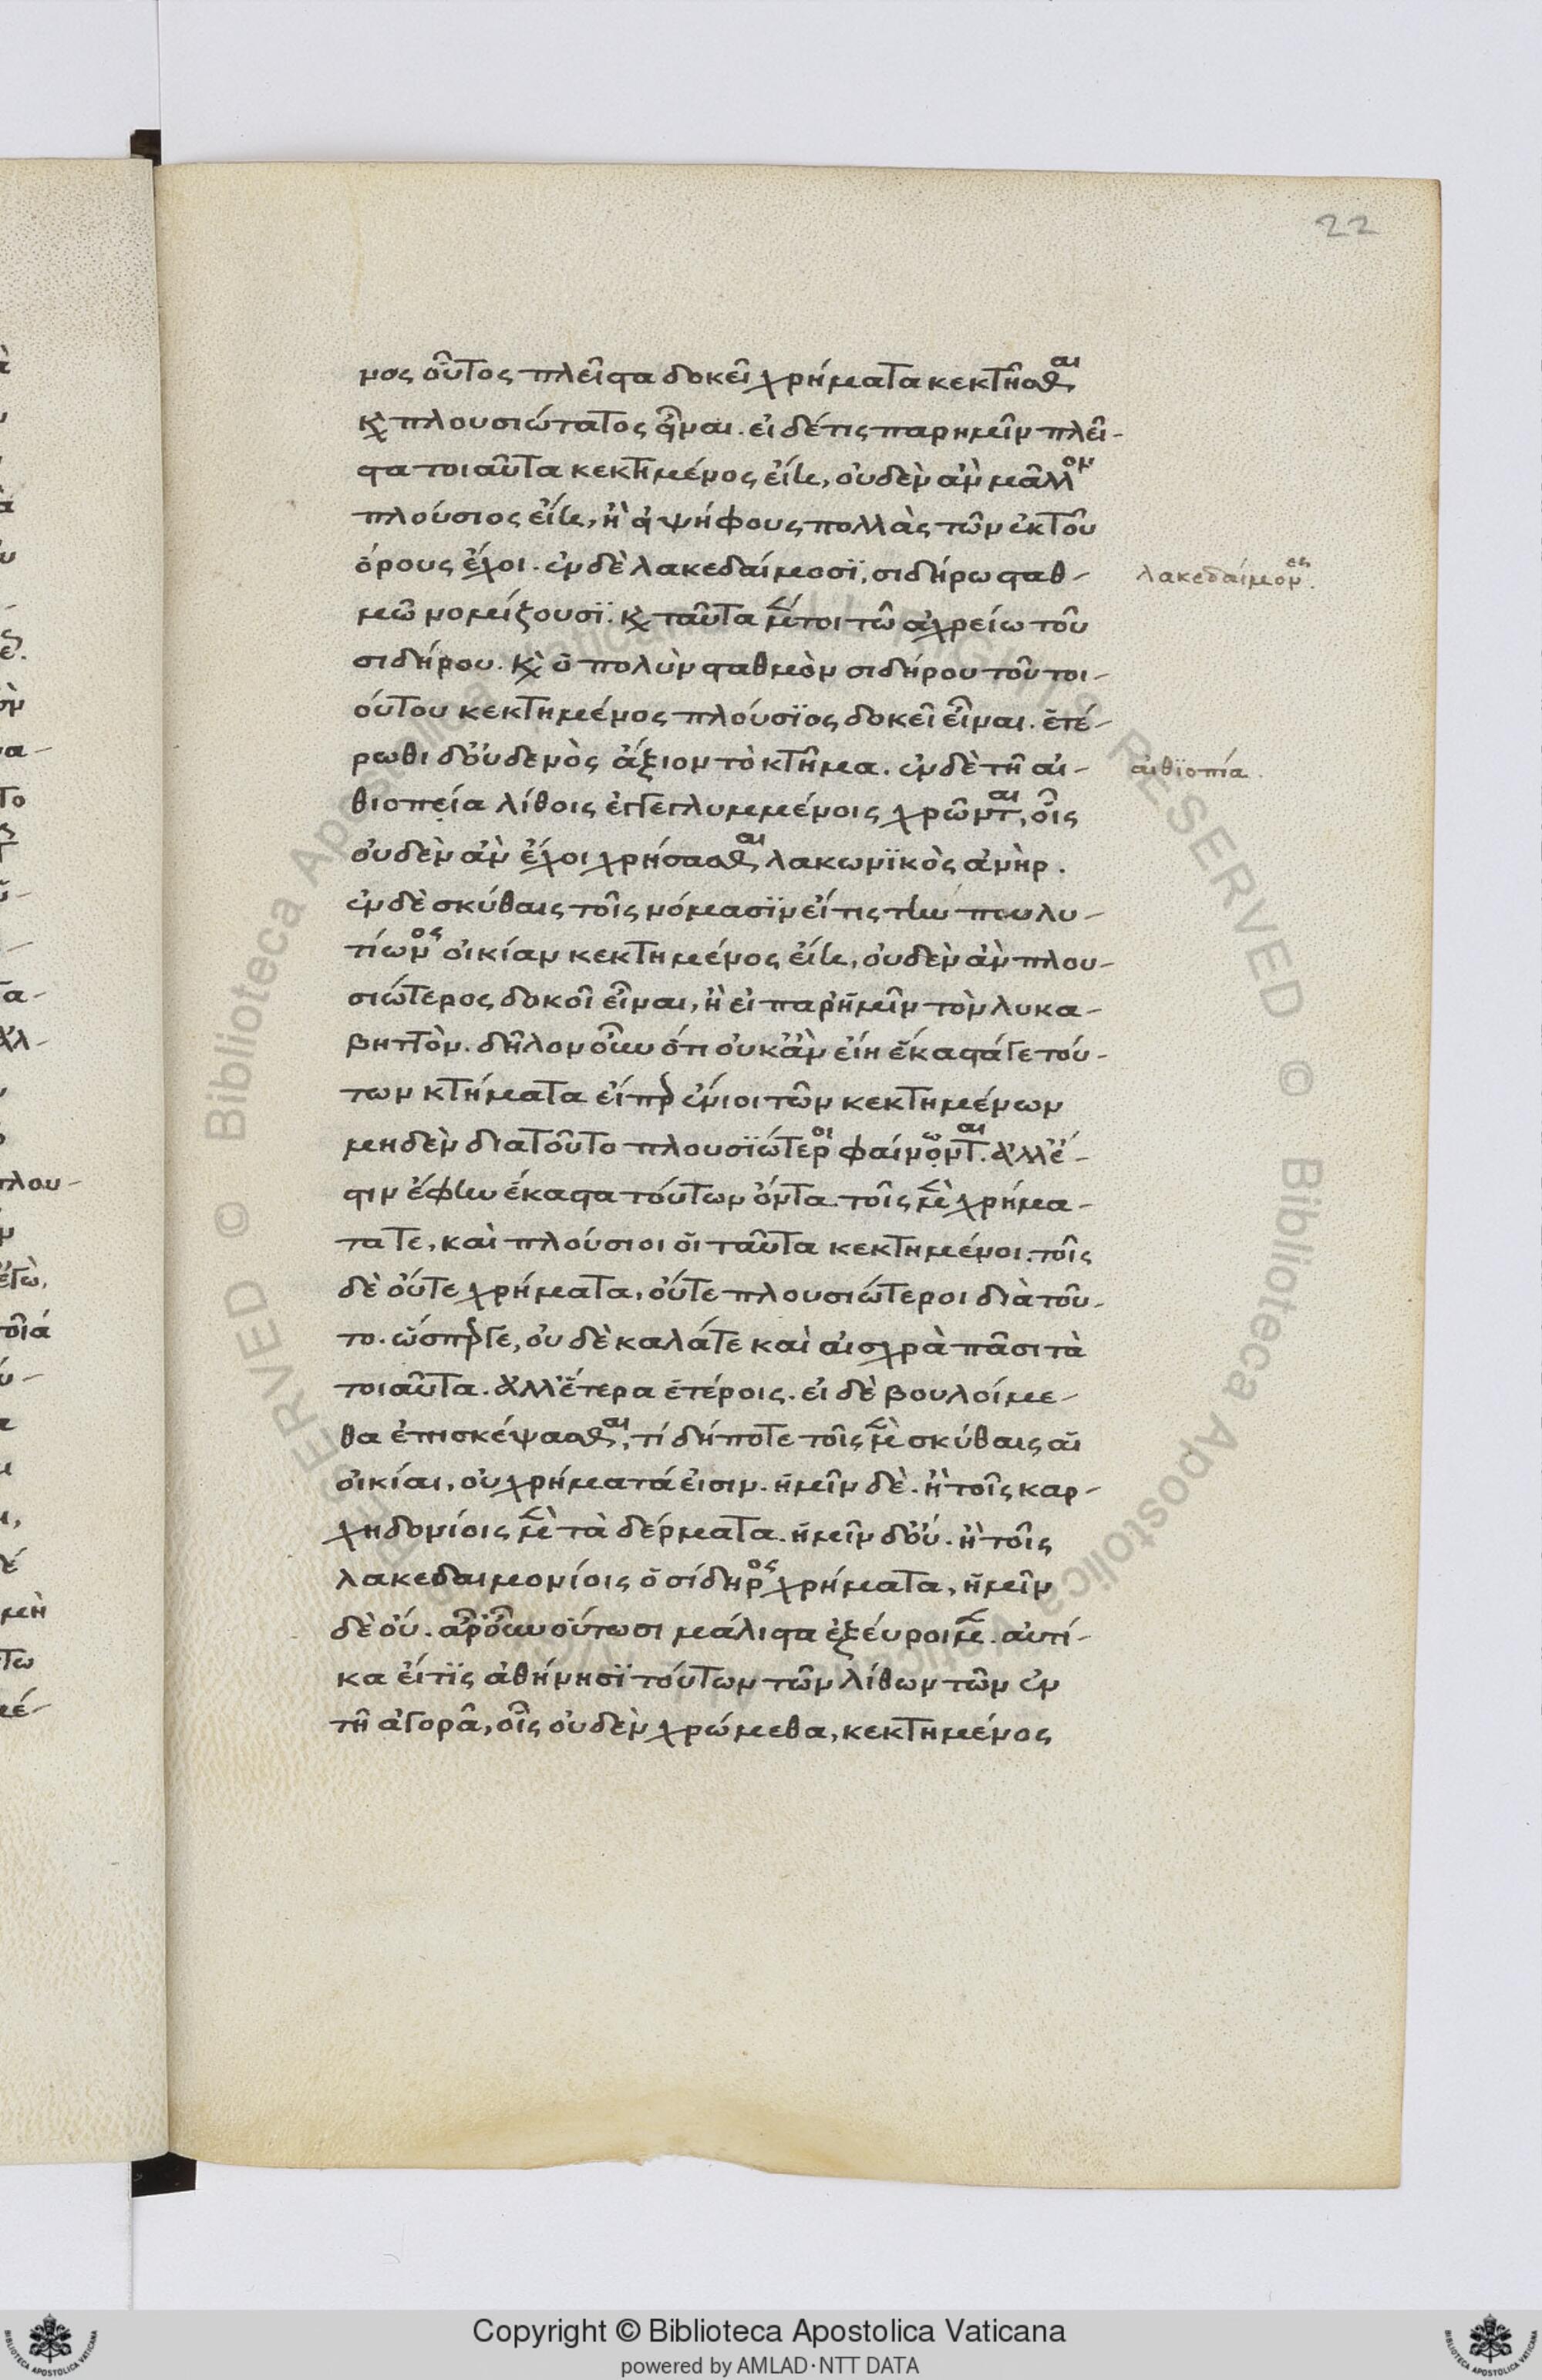 22
μος οὗτος πλεῖστα δοκεῖ χρήματα κεκτῆσθαι
καὶ πλουσιώτατος εἶναι. εἰ δέ τις παρ ἡμεῖν πλεῖ-
στα τοιαῦτα κεκτημένος εἴη, οὐδὲν ἂν μᾶλλον
πλούσιος εἴη, ἢ εἰ ψήφους πολλὰς τῶν ἐκ τοῦ
ὄρους ἔχοι. ἐν δὲ λακεδαίμοσϊ, σιδήρω σταθ-
λακεδαίμονες.
μῶ νομείζουσϊ. καὶ ταῦτα μέντοι τῶ ἀχρείω τοῦ
σιδήρου. καὶ ὁ πολὺν σταθμὸν σιδήρου τοῦ τοι-
ούτου κεκτημένος πλούσϊος δοκεῖ εἶναι. ἑτέ-
ρωθι δ' οὐδενὸς ἄξιον τὸ κτῆμα. ἐν δὲ τῆ αἰ-
αἰθϊοπία.
θιοπεία λίθοις ἐγγεγλυμμένοις χρῶνται, οἷς
οὐδὲν ἂν ἔχοι χρήσασθαι λακωνϊκὸς ἀνὴρ.
ἐν δὲ σκύθαις τοῖς νόμασϊν εἴ τις τὴν πωλυ-
τίωνος οἰκίαν κεκτημένος εἴη, οὐδὲν ἂν πλου-
σιώτερος δοκοῖ εἶναι, ἢ εἰ παρ' ἡμεῖν τὸν λυκα-
βηττὸν. δῆλον οὖν ὅτι οὐκ ἂν εἴη ἕκαστά γε τού-
των κτήματα εἴπερ ἔνιοι τῶν κεκτημένων
μηδὲν διατοῦτο πλουσϊώτεροι φαίνονται. ἀλλ' ἔ-
στιν ἔφην ἕκαστα τούτων ὄντα. τοῖς μὲν χρήμα-
τα τε, καὶ πλούσιοι οἱ ταῦτα κεκτημένοι. τοῖς
δὲ οὔτε χρήματα, οὔτε πλουσιώτεροι διὰ τοῦ-
το. ὥσπερ γε, οὐδὲ καλά τε καὶ αἰσχρὰ πᾶσι τὰ
τοιαῦτα. ἀλλ' ἕτερα ἑτέροις. εἰ δὲ βουλοίμε-
θα ἐπισκέψασθαι, τί δήποτε τοῖς μὲν σκύθαις αἱ
οἰκίαι, οὐ χρήματά εἰσιν. ἡμεῖν δὲ. ἢ τοῖς καρ-
χηδονίοις μὲν τὰ δέρματα. ἡμεῖν δ' οὔ. ἢ τοῖς
λακεδαιμονίοις ὁ σίδηρος χρήματα, ἡμεῖν
δὲ οὔ. ἆρ' οὖν οὕτωσι μάλιστα ἐξεύροιμεν. αὐτί-
κα εἴ τϊς ἀθήνησϊ τούτων τῶν λίθων τῶν ἐν
τῆ ἀγορᾶ, οἷς οὐδὲν χρώμεθα, κεκτημένος
Copyright © Biblioteca Apostolica Vaticana
powered by AMLAD·NTT DATA